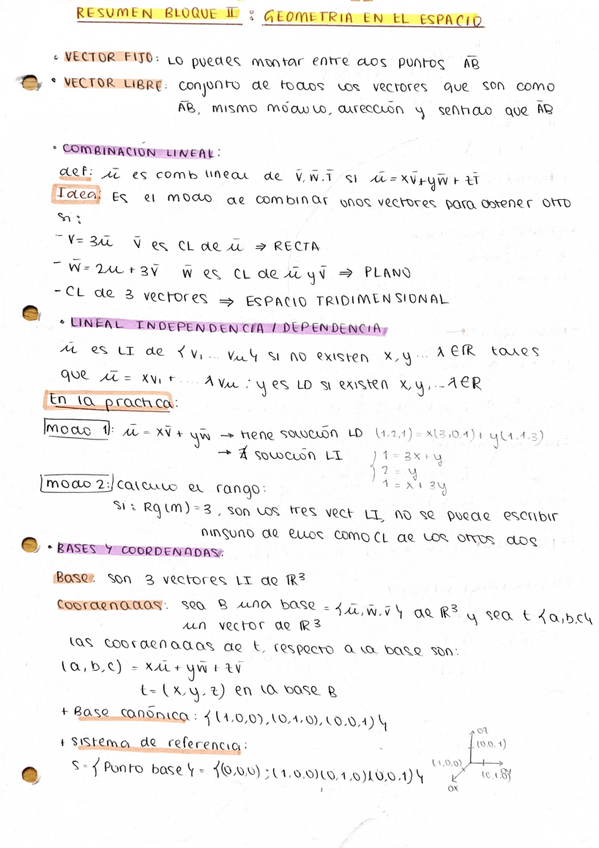 RESUMEN BLOQUE II : GEOMETRIA EN EL ESPACIO
• VECTOR FIJO: LO puedes montar entre dos puntos AB̄
• VECTOR LIBRE: conjunto de todos los vectores que son como
AB̄, mismo módulo, dirección y sentido que AB̄
• COMBINACIÓN LINEAL:
def: ū es comb lineal de v̄, w̄, t̄ si ū = xv̄+yw̄+zt̄
Idea: Es el modo de combinar unos vectores para obtener otro
si:
- V= 3ū v̄ es CL de ū ⇒ RECTA
- w̄ = 2u + 3v̄ w̄ es CL de ū y v̄ ⇒ PLANO
- CL de 3 vectores ⇒ ESPACIO TRIDIMENSIONAL
• LINEAL INDEPENDENCIA / DEPENDENCIA
ū es LI de {v₁ ... vn} si no existen x, y ... λ ∈ ℝ tales
que ū = xv₁ + ... λvn ; y es LD si existen x, y, ... λ ∈ ℝ
En la práctica:
modo 1: ū = xv̄ + yw̄ → tiene solución LD (1,2,1) = x(3,0,1) + y(1,1,3)
→ ∄ solución LI
1 = 3x + y
2 = y
1 = x + 3y
modo 2: calculo el rango:
si: Rg(M) = 3, son los tres vect LI, no se puede escribir
ninguno de ellos como CL de los otros dos
• BASES Y COORDENADAS:
Base: son 3 vectores LI de ℝ³
Coordenadas: sea B una base = {ū, w̄, v̄} de ℝ³ y sea t {a,b,c}
un vector de ℝ³
las coordenadas de t, respecto a la base son:
(a, b, c) = xū + yw̄ + zv̄
t = (x, y, z) en la base B
+ Base canónica: {(1,0,0), (0,1,0), (0,0,1)}
+ sistema de referencia:
S = {Punto base} = {(0,0,0) ; (1,0,0)(0,1,0)(0,0,1)}
OZ
(0,0,1)
(1,0,0)
OX